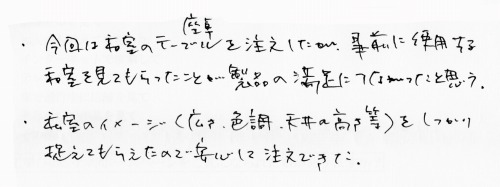 ・今回は和室のテーブル(座卓)を注文したが、事前に使用する
和室を見てもらったことが製品の満足につながったと思う。
・和室のイメージ(広さ、色調、天井の高さ等)をしっかり
捉えてもらえたので安心して注文できた。